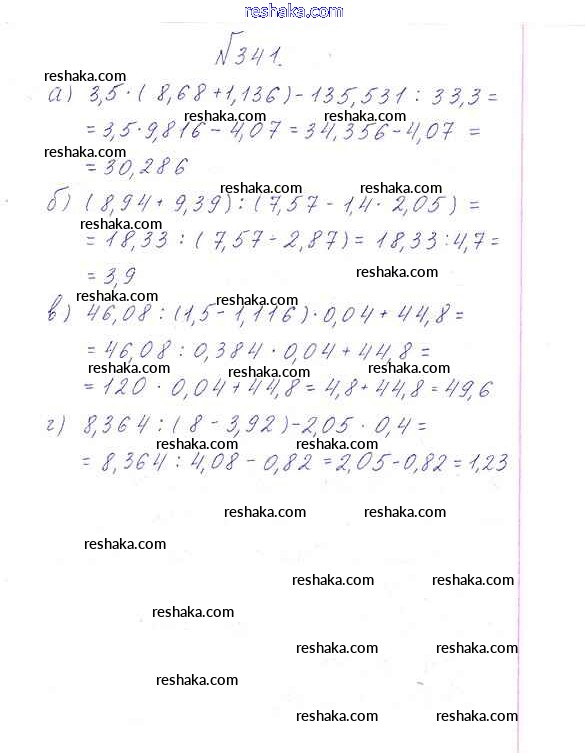 reshaka.com
№341.
reshaka.com
а) 3,5·(8,68+1,136)-135,531:33,3=
reshaka.com reshaka.com
=3,5·9,816-4,07=34,356-4,07=
reshaka.com
=30,286
reshaka.com reshaka.com
б) (8,94+9,39):(7,57-1,4·2,05)=
reshaka.com
=18,33:(7,57-2,87)=18,33:4,7=
=3,9
reshaka.com
reshaka.com reshaka.com
в) 46,08:(1,5-1,116)·0,04+44,8=
=46,08:0,384·0,04+44,8=
reshaka.com reshaka.com reshaka.com
=120·0,04+44,8=4,8+44,8=49,6
г) 8,364:(8-3,92)-2,05·0,4=
reshaka.com reshaka.com
=8,364:4,08-0,82=2,05-0,82=1,23
reshaka.com reshaka.com
reshaka.com
reshaka.com reshaka.com
reshaka.com
reshaka.com reshaka.com
reshaka.com
reshaka.com reshaka.com